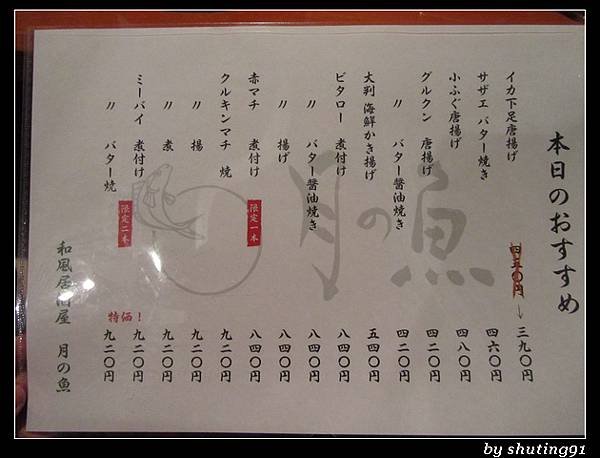 本日のおすすめ
イカ下足唐揚げ 四五〇円→三九〇円
サザエ バター焼き 四六〇円
小ふぐ唐揚げ 四八〇円
グルクン 唐揚げ 四二〇円
〃 バター醤油焼き 四二〇円
大判 海鮮かき揚げ 五四〇円
ビタロー 煮付け 八四〇円
〃 バター醤油焼き 八四〇円
〃 揚げ 八四〇円
赤マチ 煮付け 限定一本 八四〇円
クルキンマチ 焼 九二〇円
〃 揚 九二〇円
〃 煮 九二〇円
ミーバイ 煮付け 九二〇円
〃 バター焼 限定二本 特価! 九二〇円
和風居酒屋 月の魚
月の魚
by shuting91